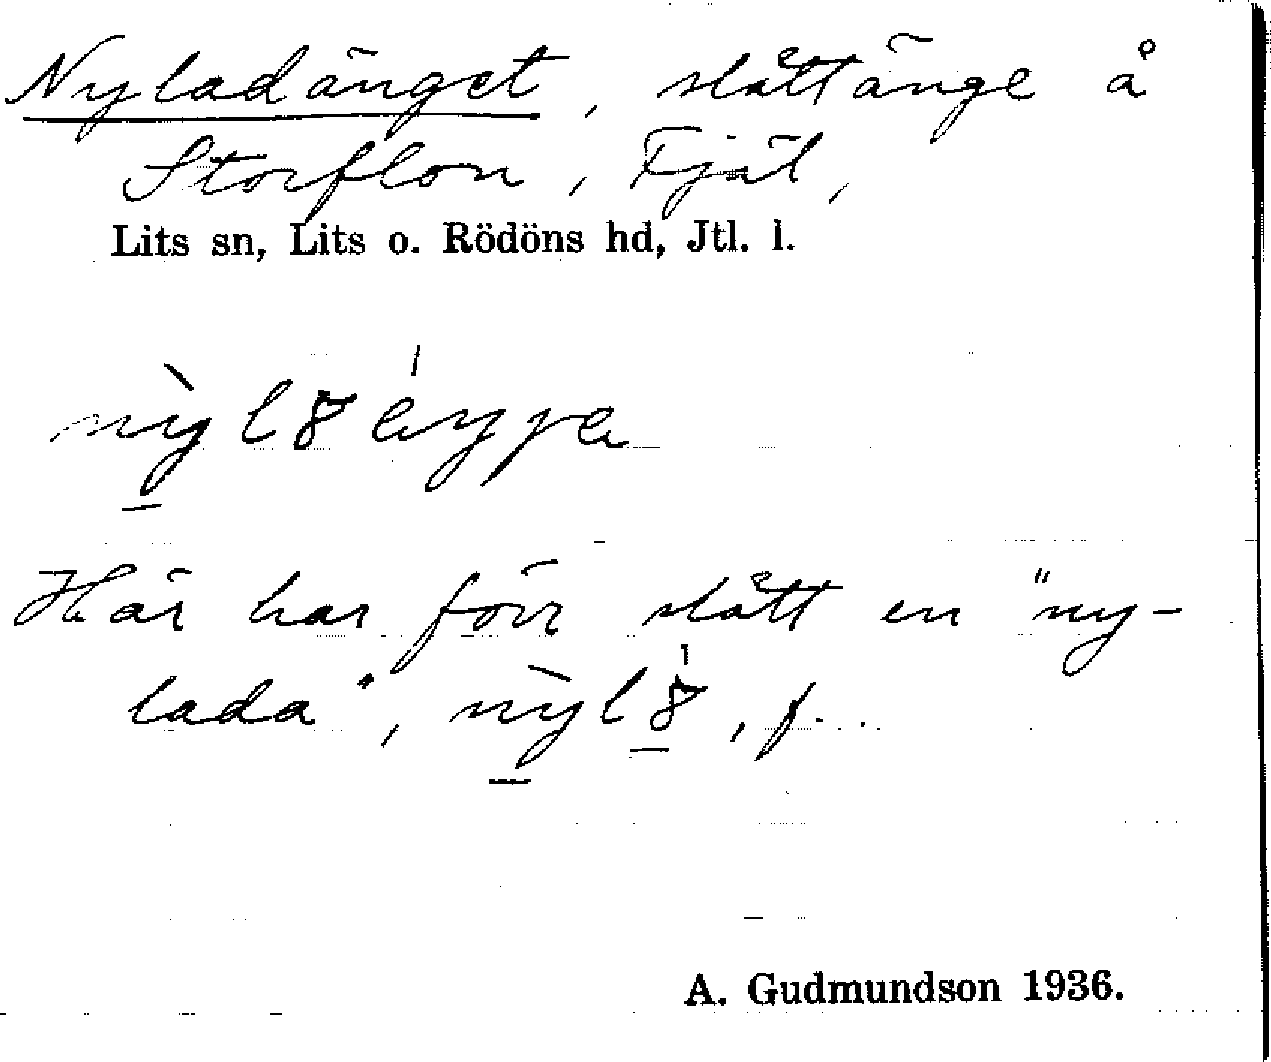 Nyladänget, slåttänge å
Storflon, Fjäl,
Lits sn, Lits o. Rödöns hd, Jtl. l.
Här har förr stått en "ny-
lada", f.
A. Gudmundson 1936.